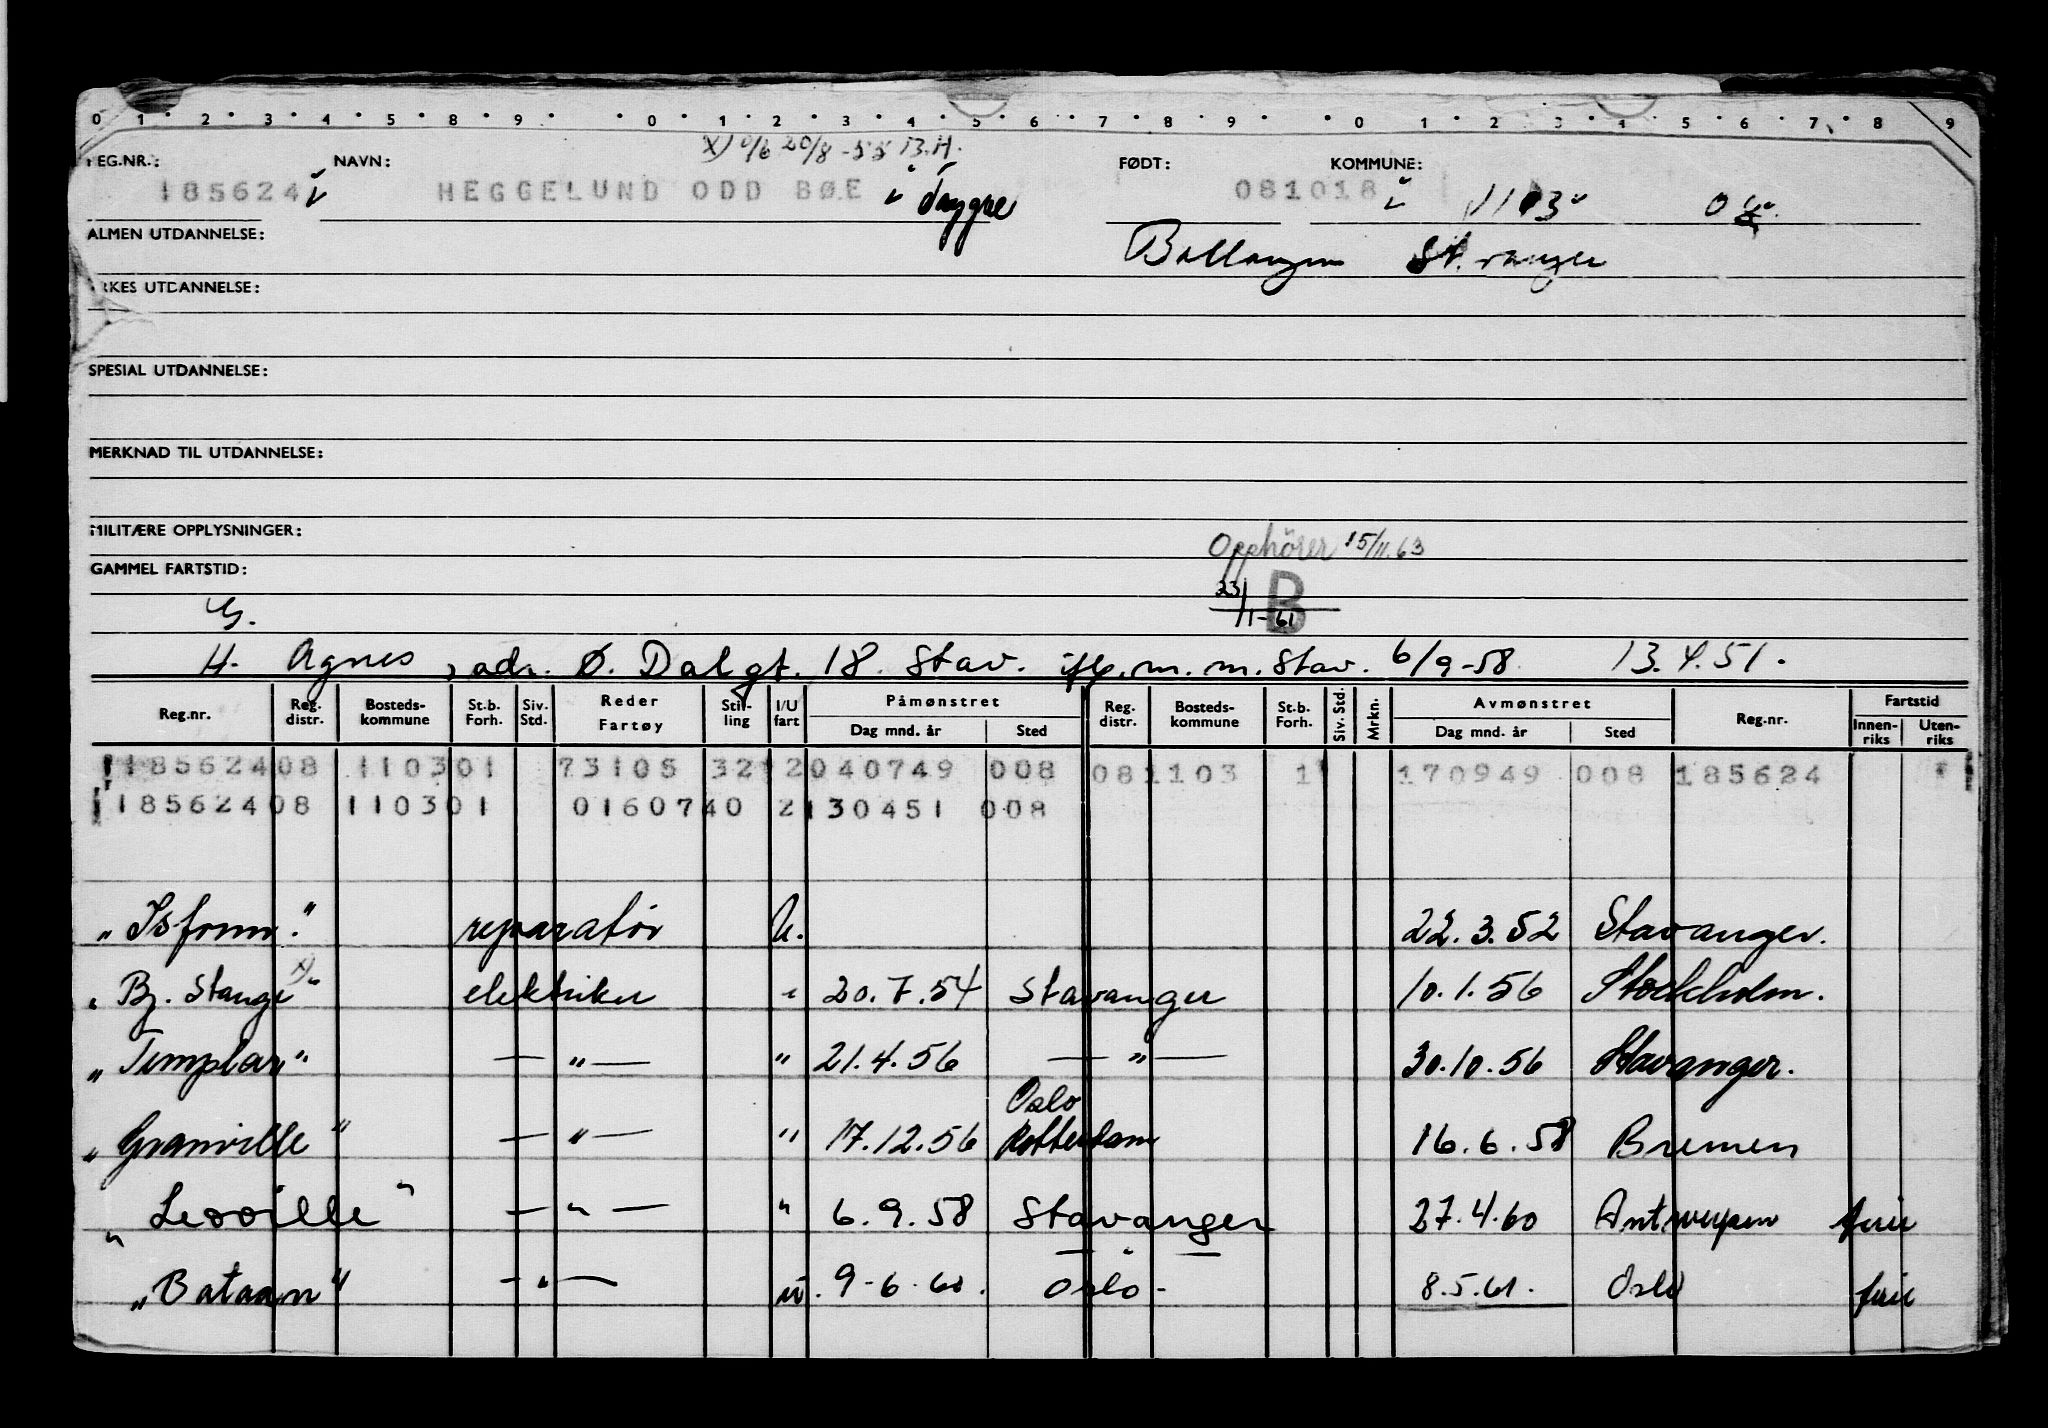 0 1 2 3 4 5 8 9 0 1 2 3 4 5 6 7 8 9 0 1 2 3 4 5 6 7 8 9
X) 20/8-55 B.H.
REG.NR.: NAVN: FØDT: KOMMUNE:
185624 HEGGELUND ODD BØE Trygve 081018 1103
ALMEN UTDANNELSE: Ballangen St.vanger
YRKES UTDANNELSE:
SPESIAL UTDANNELSE:
MERKNAD TIL UTDANNELSE:
MILITÆRE OPPLYSNINGER:
Opphører 15/11.63
GAMMEL FARTSTID:
23/1-61 B
G.
H. Agnes, adr. Ø. Dalgt. 18. Stav. m. m. Stav. 6/9-58 13.4.51.
Reg.nr. Reg. distr. Bosteds-kommune St.b. Forh. Siv. Std. Reder Fartøy Stil-ling I/U fart Påmønstret Dag mnd. år Sted Reg. distr. Bosteds-kommune St.b. Forh. Siv. Std. Mrkn. Avmønstret Dag mnd. år Sted Reg.nr. Fartstid Innen-riks Uten-riks
18562408 110301 73105 32 2 040749 008 081103 1 170949 008 185624
18562408 110301 0160740 2 130451 008
"Isfonn." reparatør U. 22.3.52 Stavanger.
"Bj. Stange" x) elektriker " 20.7.54 Stavanger 10.1.56 Stockholm.
"Templar" — " — " 21.4.56 — " — 30.10.56 Stavanger.
Oslo
"Granville" — " — " 17.12.56 Rotterdam 16.6.58 Bremen
"Leoville" — " — " 6.9.58 Stavanger 27.4.60 Antwerpen ferie
— " —
"Bataan" — " — u. 9-6-60. Oslo - 8.5.61. Oslo ferie